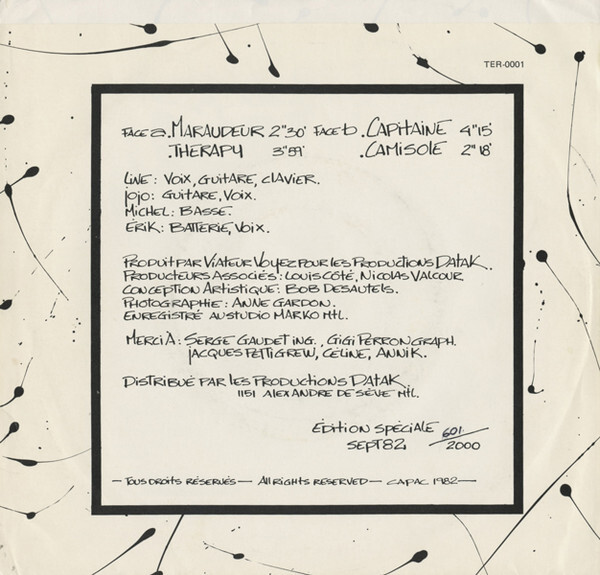 TER-0001
FACE a. MARAUDEUR 2"30' FACE b. CAPITAINE 4"15'
.THERAPY 3"59' .CAMISOLE 2"18'
LINE: VOIX, GUITARE, CLAVIER.
JOJO: GUITARE, VOIX.
MICHEL: BASSE.
ERIK: BATTERIE, VOIX.
PRODUIT PAR VIATEUR VOYEZ POUR LES PRODUCTIONS DATAK.
PRODUCTEURS ASSOCIÉS: LOUIS CÔTÉ, NICOLAS VALCOUR
CONCEPTION ARTISTIQUE: BOB DESAUTELS.
PHOTOGRAPHIE: ANNE GARDON.
ENREGISTRÉ AU STUDIO MARKO MTL.
MERCI À: SERGE GAUDET ING., GIGI PERRON GRAPH.
JACQUES PETTIGREW, CÉLINE, ANNIK.
DISTRIBUÉ PAR LES PRODUCTIONS DATAK.
1151 ALEXANDRE DE SÈVE MTL.
ÉDITION SPÉCIALE 601/2000
SEPT 82
— TOUS DROITS RÉSERVÉS — ALL RIGHTS RESERVED — CAPAC 1982 —